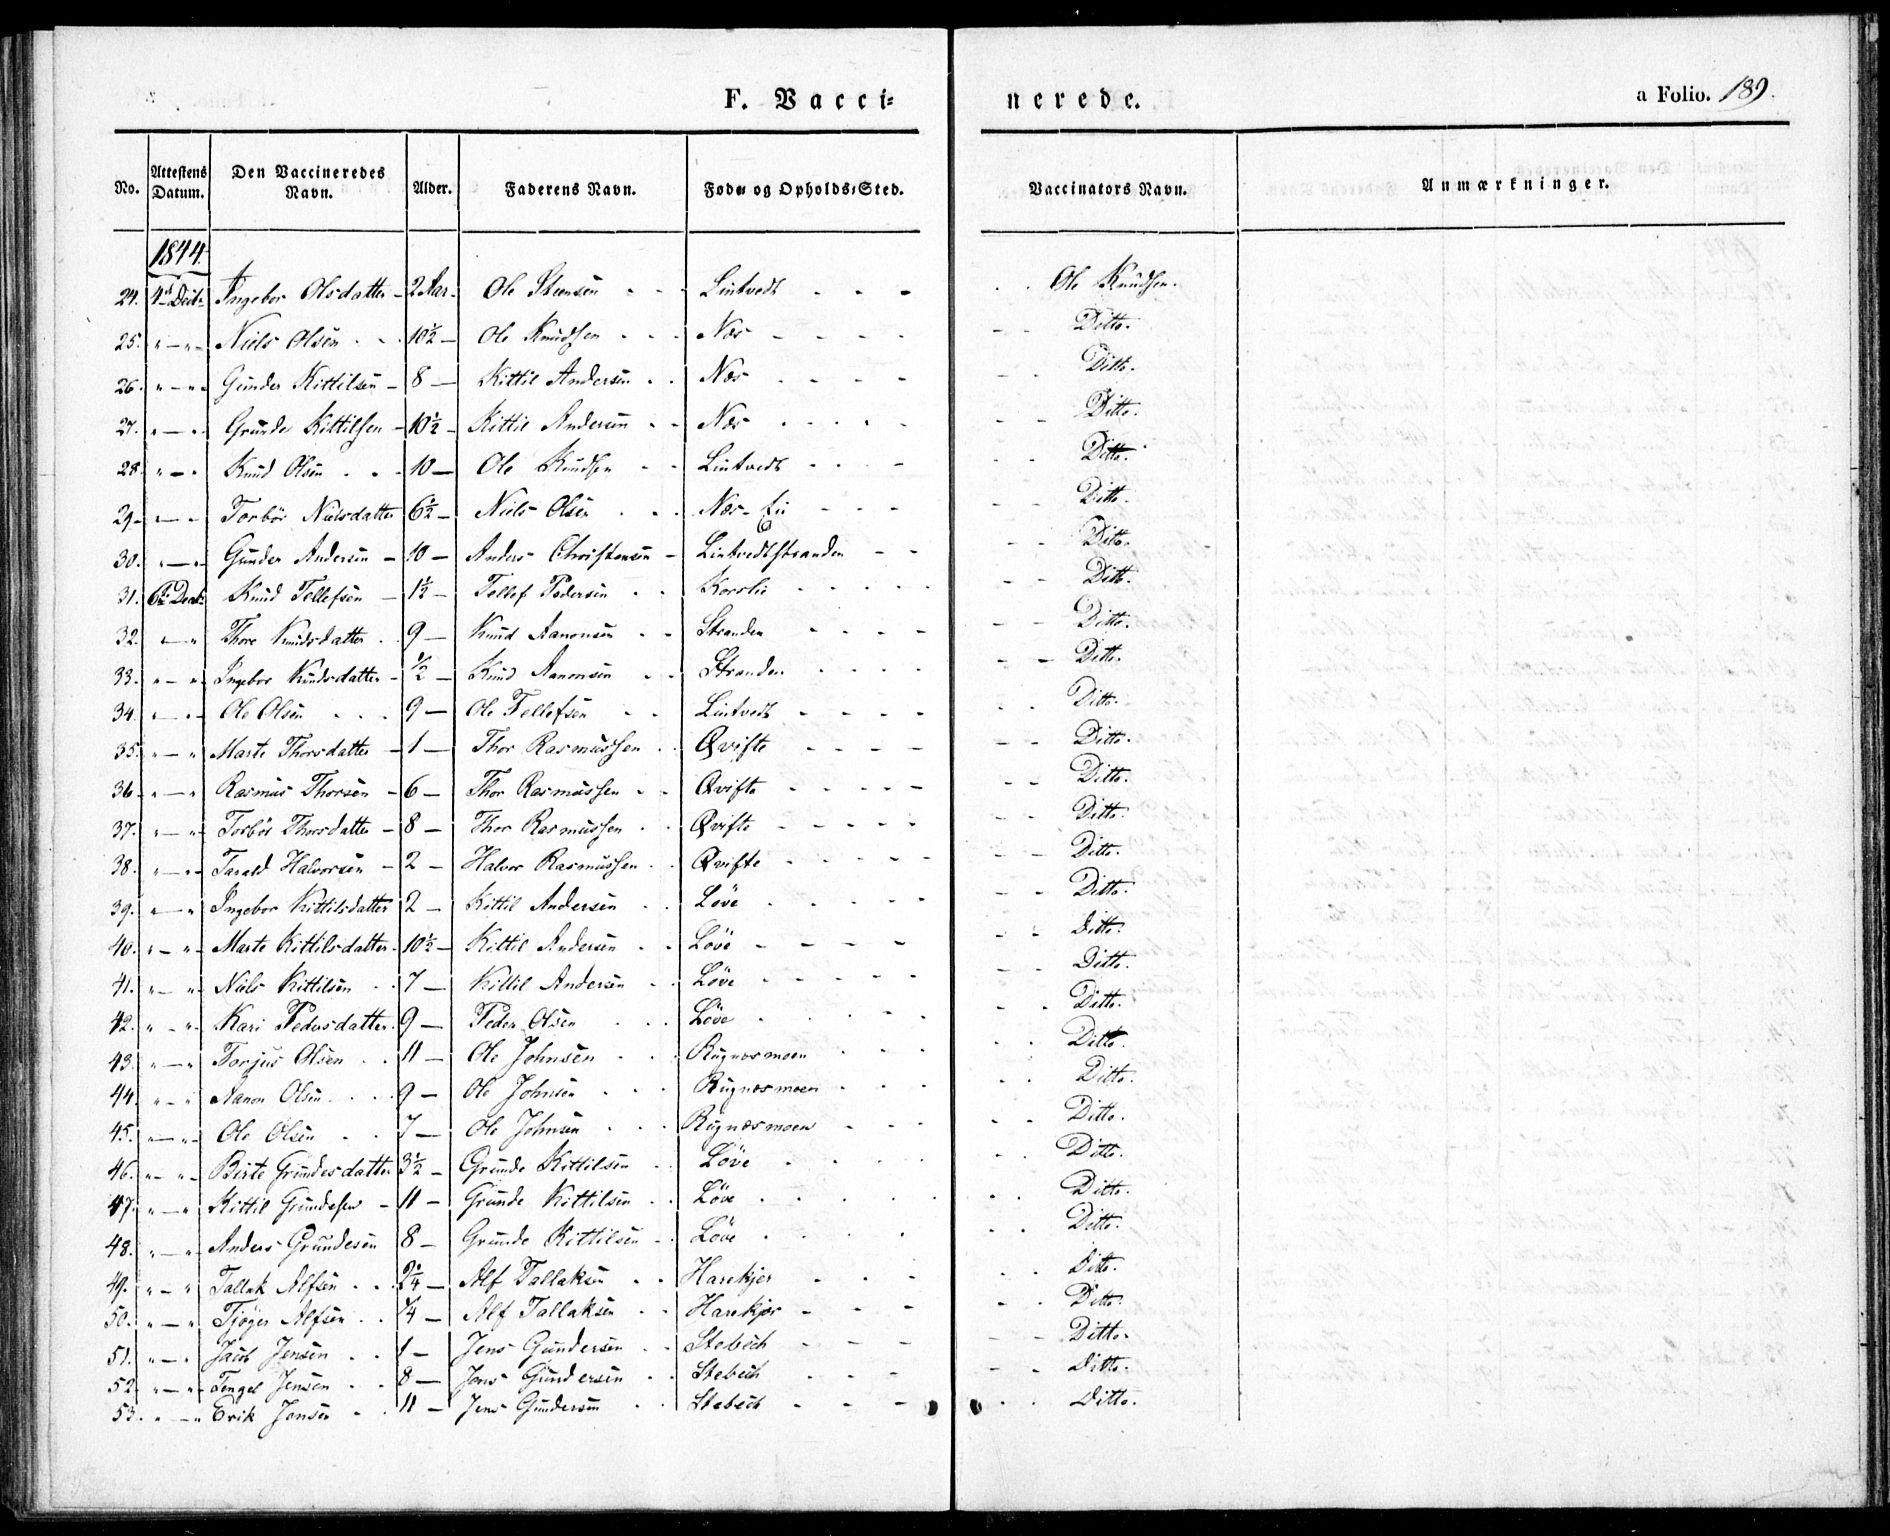 F. Vacci=
nerede.
a Folio. 189.
No. Attestens Datum. Den Vaccineredes Navn. Alder. Faderens Navn. Føde og Opholds-Sted. Vaccinators Navn. Anmærkninger.
1844.
24. 4de Decbr Ingebor Olsdatter - 2 Aar. Ole Steensen - - Lintvedt - - - Ole Knudsen.
25. " — " Niels Olsen - - 10½ — Ole Knudsen - - Næs - - - - Ditto.
26. " — " Gunder Kittilsen - 8 — Kittil Andersen - - Næs - - - - Ditto.
27. " — " Grunde Kittilsen - 10½ - Kittil Andersen - - Næs - - - - Ditto.
28. " — " Knud Olsen - - 10 — Ole Knudsen - - Lintvedt - - - Ditto.
29. " — " Torbör Nielsdatter 6½ — Niels Olsen - - Næs- - - - Ditto.
30. " — " Gunder Andersen - 10 — Anders Christensen - Lintvedtstranden - - Ditto.
31. 6te Decbr Knud Tellefsen - 1½ - Tellef Pedersen - - Korslie - - - - Ditto.
32. " — " Thore Knudsdatter - 9 — Knud Aanonsen - - Stranden - - - - Ditto.
33. " — " Ingebor Knudsdatter - ½ — Knud Aanonsen - - Stranden - - - - Ditto.
34. " — " Ole Olsen - - - 9 — Ole Tellefsen - - Lintvedt - - - - Ditto.
35. " — " Marte Thorsdatter - 1 — Thor Rasmussen - - Qvifte - - - - Ditto.
36. " — " Rasmus Thorsen - 6 — Thor Rasmussen - - Qvifte - - - - Ditto.
37. " — " Torbör Thorsdatter - 8 — Thor Rasmussen - - Qvifte - - - - Ditto.
38. " — " Tarald Halvorsen - 2 - Halvor Rasmussen - - Qvifte - - - - Ditto.
39. " — " Ingebor Kittilsdatter 2 — Kittil Andersen - - Löve - - - - Ditto.
40. " — " Marte Kittilsdatter - 10½ — Kittil Andersen - - Löve - - - - Ditto.
41. " — " Niels Kittilsen - - 7 — Kittil Andersen - - Löve - - - - Ditto.
42. " — " Kari Pedersdatter 9 — Peder Olsen - - - Löve - - - - Ditto.
43. " — " Torjus Olsen - - 11 — Ole Johnsen - - - Rugnæsmoen - - - Ditto.
44. " — " Aanon Olsen - - 9 — Ole Johnsen - - - Rugnæsmoen - - - Ditto.
45. " — " Ole Olsen - - 7 — Ole Johnsen - - - Rugnæsmoen - - - Ditto.
46. " — " Birte Grundesdatter 3½ — Grunde Kittilsen - - Löve - - - - Ditto.
47. " — " Kittil Grundesen - 11 — Grunde Kittilsen - - Löve - - - - Ditto.
48. " — " Anders Grundesen 8 — Grunde Kittilsen - - Löve - - - - Ditto.
49. " — " Tallak Alfsen - - 2¼ — Alf Tallaksen - - Harekjer - - - Ditto.
50. " — " Tjöger Alfsen - - ¼ — Alf Tallaksen - - Harekjer - - - Ditto.
51. " — " Jacob Jensen - - 1 — Jens Gundersen - - Stebech - - - Ditto.
52. " — " Tengel Jensen - - 8 — Jens Gundersen - - Stebech - - - Ditto.
53. " — " Erik Jensen - - 11 — Jens Gundersen - - Stebech - - - Ditto.